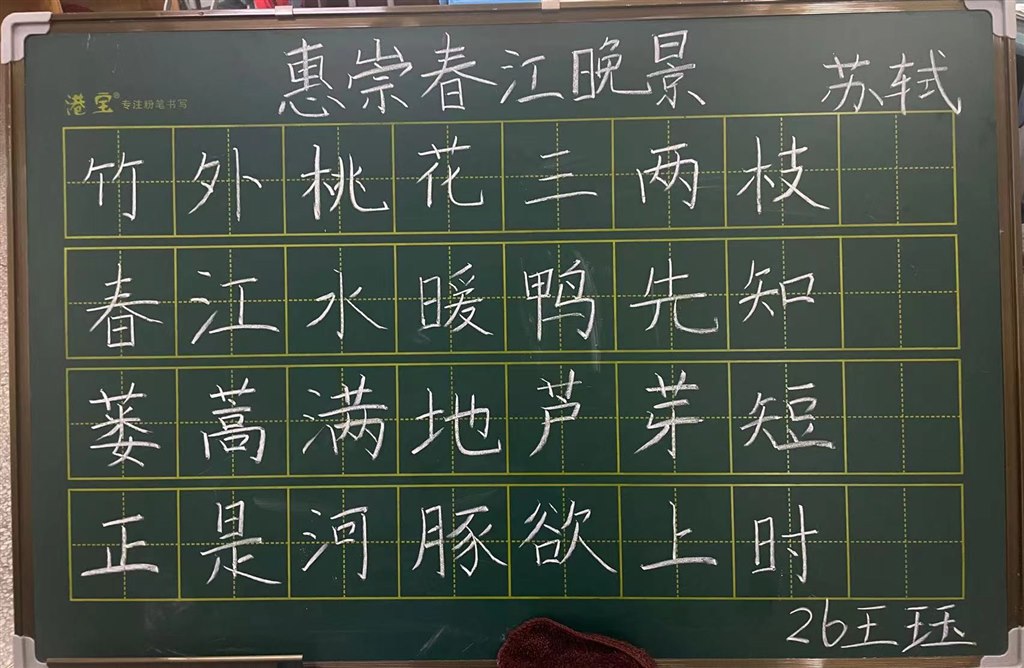 惠崇春江晚景 苏轼
港宝® 专注粉笔书写
竹外桃花三两枝
春江水暖鸭先知
蒌蒿满地芦芽短
正是河豚欲上时
26王珏